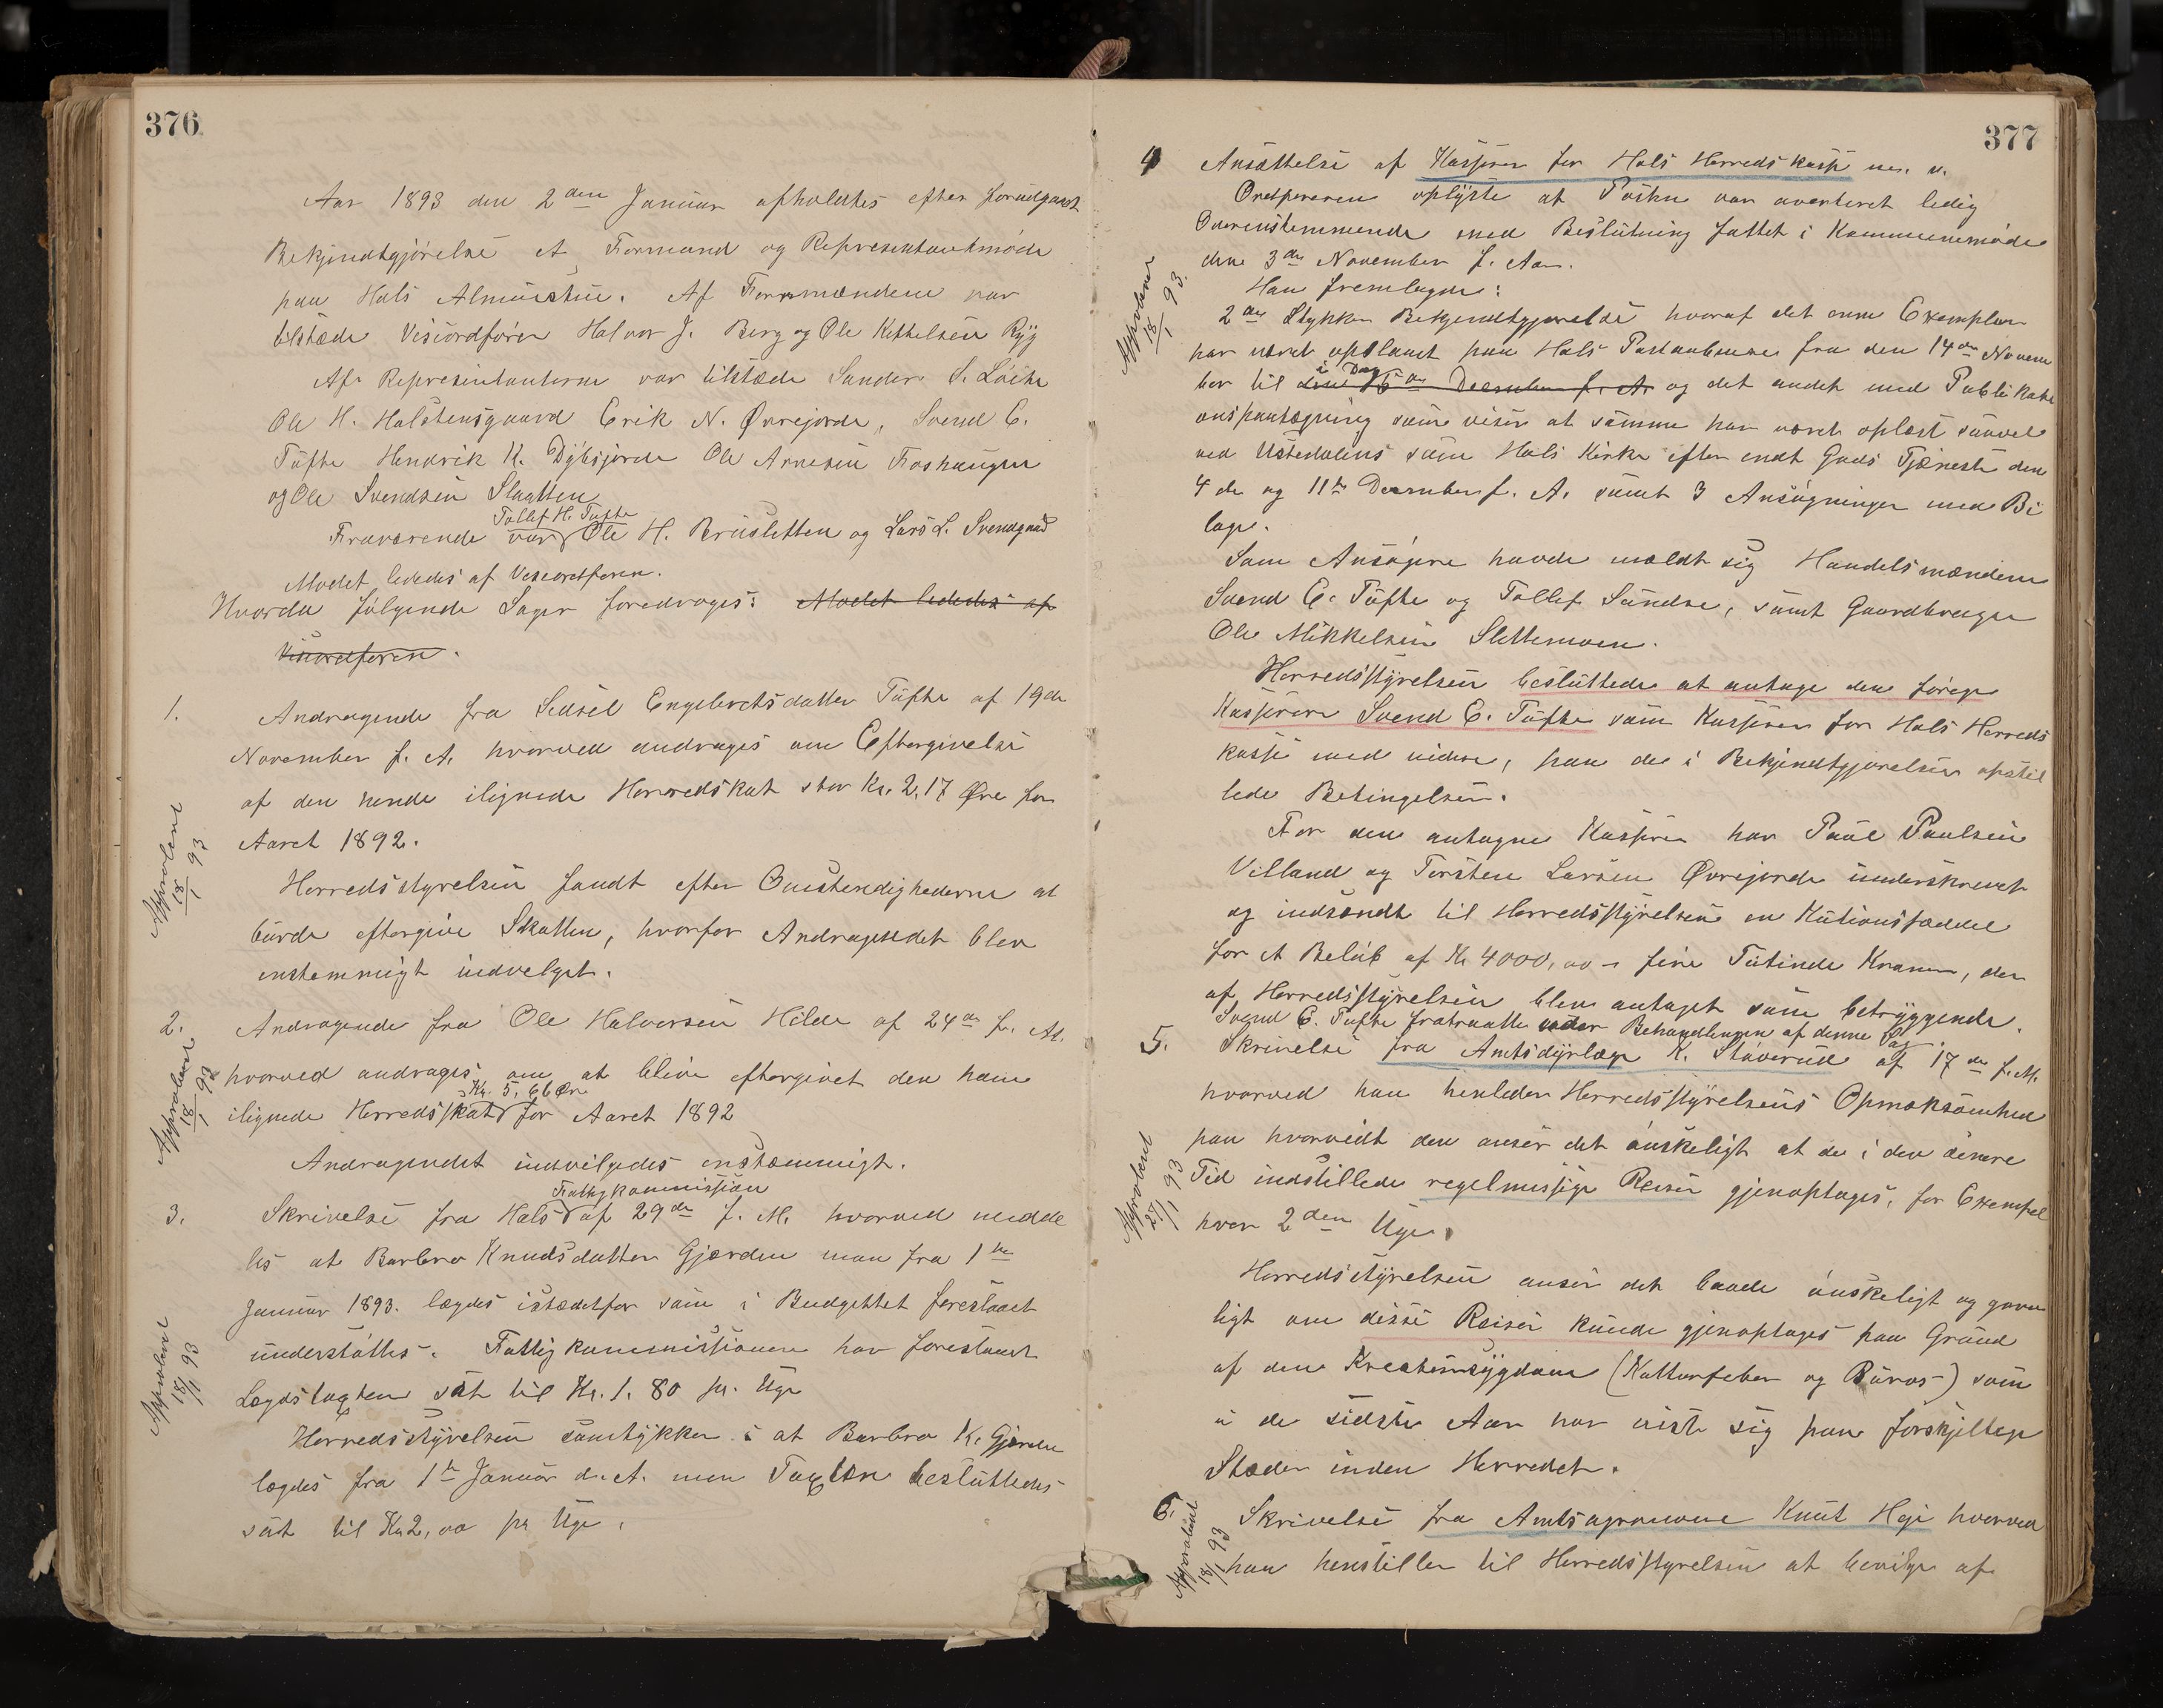 376
Aar 1893 den 2den Januar afholdtes efter forudgaaet
Bekjendtgjørelse et Formand og Representantmøde
paa Hols Almuestue. Af Formændene var
tilstæde Viseordfører Halvor J. Berg og Ole Kittelsen Ryg
Af Representanterne var tilstæde Sander S.
Ole H. Holstensgaard Erik N. Øvrejorde, Svend E.
Tufte Hendrik K. Dybsjorde Ole Arnesen Foshaugen
og Ole Svendsen Slaatten
Tollef H. Tufte
Fraværende var Ole H. Brusletten og Lars L. Svendgaard
Modet lededes af Viseordføren.
Hvorda følgende Sager foredroges: Modet lededes af
Viseordføren.
1.
Andragende fra Sidsel Engebretsdatter Tufte af 19de
November f. A. hvorved andrages om Eftergivelse
af den hende ilignede Herredskat stor Kr. 2.17 Øre for
Aaret 1892.
Approberet 18/1 93
Herredsstyrelsen fandt efter Omstendighederne at
burde eftergive Skatten, hvorfor Andragendet blev
enstemmigt indvelget.
2.
Andragende fra Ole Halvorsen Hilde af 24de f. M.
hvorved andrages om at blive eftergivet den ham
Kr. 5,66 Øre
ilignede Herredsskat for Aaret 1892
Approberet 18/1 93
Andragendet indvilgedes enstæmmigt.
3.
Fattigkommission
Skrivelse fra Hols af 29de f. M. hvorved medde
les at Barbro Knudsdatter Gjerden maa fra 1ste
Januar 1893. lægdes istædetfor som i Budgettet foreslaaet
understøttes. Fattigkommissionen har foreslaaet
Lægdstagten sat til Kr. 1.80 pr. Uge
Approberet 18/1 93
Herredsstyrelsen samtykker i at Barbro K. Gjerden
lægdes fra 1ste Januar d. A. men Taxten besluttedes
sat til Kr 2,00 pr Uge.
377
4
Ansættelse af Kasserer for Hols Herredskasse m. v.
Ordføreren oplyste at Posten var averteret ledig
Overenstemmende med Beslutning fattet i Kommunemøde
den 3de November f. Aar.
Han fremlagde:
Approberet 18/1 93.
2de Stykker Bekjendtgjørelse hvoraf det ene Exemplar
har været opslaaet paa Hols Postaabneri fra den 14de Novem
i Dag
ber til den 15de December f. A. og det andet med Publikati
onspaategning som viser at samme har været oplæst saavel
ved Ustedalens som Hols Kirke efter endt Guds Tjeneste den
4de og 11te December f. A. samt 3 Ansøgninger med Bi
lage.
Som Ansøgere havde mældt sig Handelsmændene
Svend E. Tufte og Tollef Sundre, samt Gaardbruger
Ole Mikkelsen Slettemoen.
Herredsstyrelsen besluttede at antage den forige
Kasserer Svend E. Tufte som Kasserer for Hols Herreds
kasse med videre, paa de i Bekjendtgjørelsen opstil
lede Betingelser.
For den antagne Kasserer har Paul Paulsen
Villand og Torsten Larsen Øvrejorde underskrevet
og indsendt til Herredsstyrelsen en Kutionsseddel
for et Beløb af Kr 4000,00 – fire Tutinde Kroner, der
af Herredsstyrelsen blev antaget som betryggende.
Svend E. Tufte fratraatte under Behandlingen af denne Sag.
5.
Skrivelse fra Amtsdyrlæge K. Støverud af 17de f. M.
hvorved han henleder Herredsstyrelsens Opmoksomhed
paa hvorvidt den anser det ønskeligt at de i den senere
Tid indstillede regelmessige Reiser gjenoptages, for Exempel
hver 2den Uge.
Approberet 27/1 93
Herredsstyrelsen anser det baade ønskeligt og gavn
ligt om disse Reiser kunde gjenoptages paa Grund
af den Kreatursygdom (Katturfeber og Buraas) som
i de sidste Aar har vist sig paa forskjellige
Stæder inden Herredet.
6.
Skrivelse fra Amtsagronom Knut Hoje hvorved
han henstiller til Herredsstyrelsen at bevilge af
Approberet 18/1 93